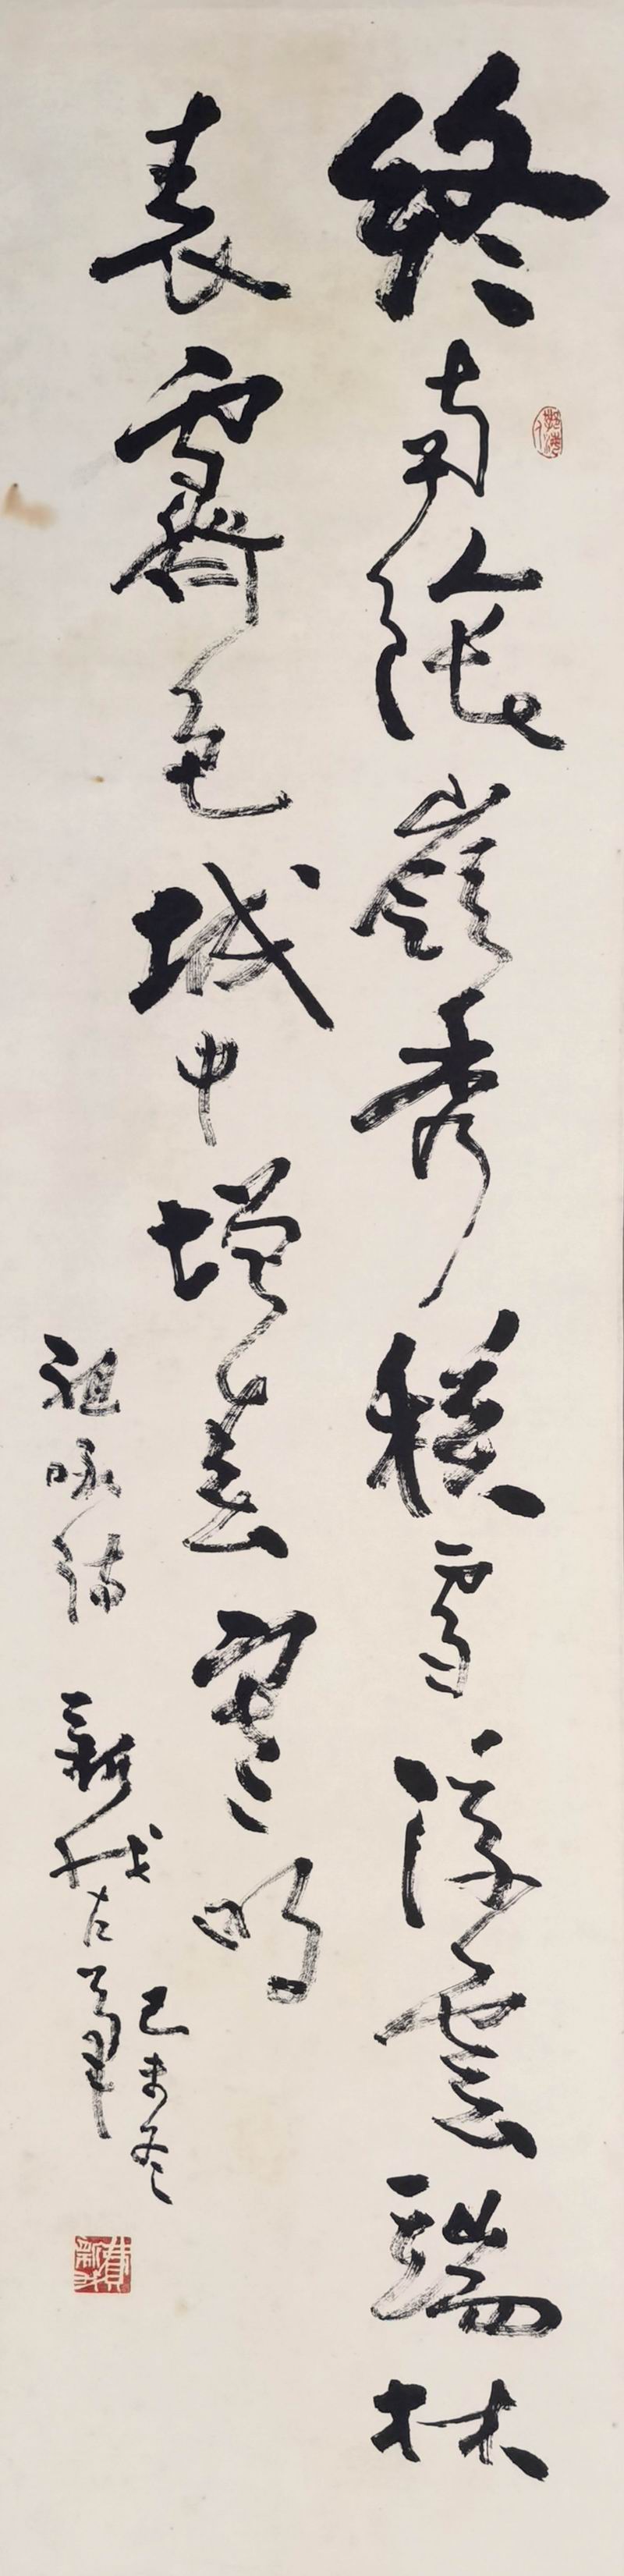 終南陰嶺秀積雪浮雲端林
表霽色城中增暮寒明
己未冬
祖咏詩 新我左筆
費新我